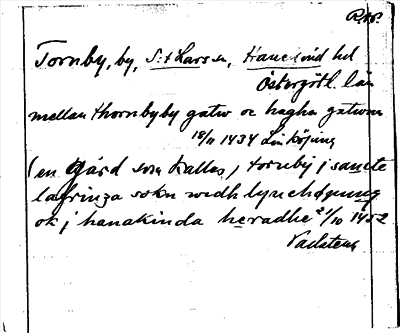 Rap.
Tornby, by, S:t Lars sn, Hanekind hd
Östergötl. län
mellan thornbyby gatw oc hagha gatwnne
18/11 1434 Linköping
(en gård som kallas) tornby j sancte
lafrinza sokn widh lynchöpung
ok j hanakinda heradhe 21/10 1452
Vadstena